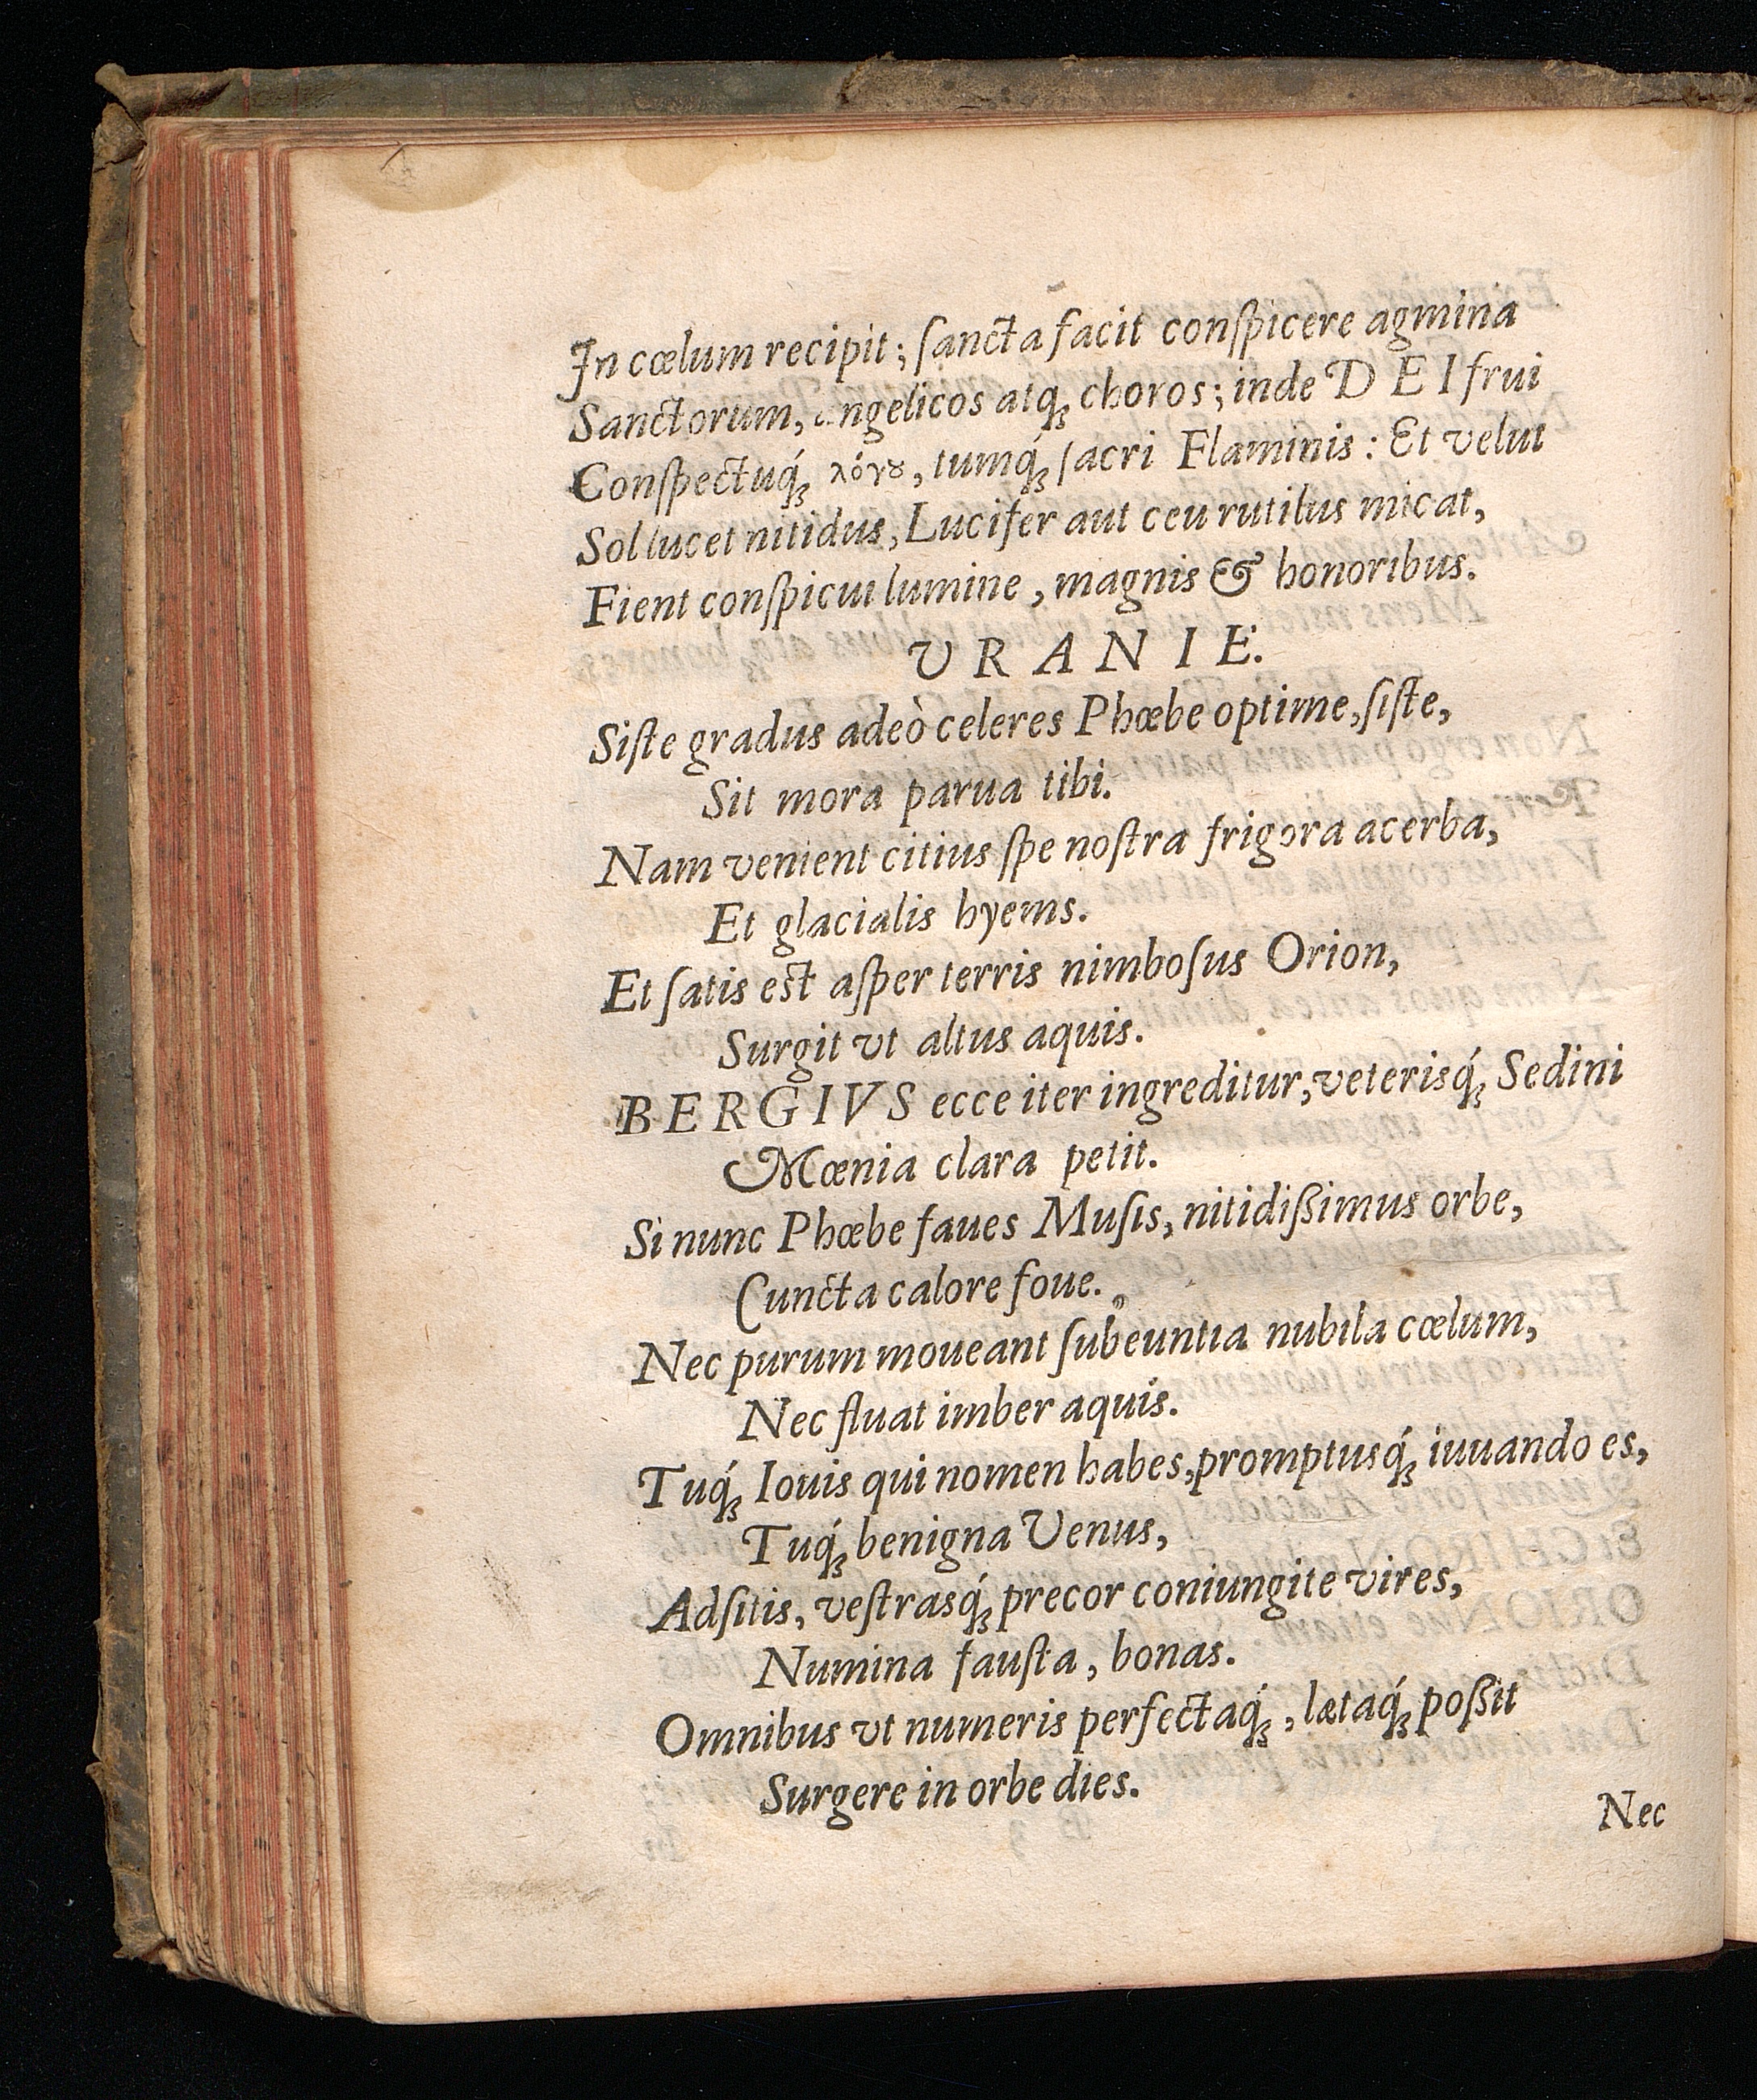 In cœlum recipit; ſancta facit conſpicere agmina
Sanctorum, angelicos atq́ꝫ choros; inde DEI frui
Conſpectuq́ꝫ λόγȣ, tumq́ꝫ ſacri Flaminis: Et velut
Sol lucet nitidus, Lucifer aut ceu rutilus micat,
Fient conſpicui lumine, magnis & honoribus.
VRANIE.
Siſte gradus adeò celeres Phœbe optime, ſiſte,
Sit mora parua tibi.
Nam venient citius ſpe noſtra frigora acerba,
Et glacialis hyems.
Et ſatis eſt aſper terris nimboſus Orion,
Surgit vt altus aquis.
BERGIVS ecce iter ingreditur, veterisq́ꝫ Sedini
Mœnia clara petit.
Si nunc Phœbe faues Muſis, nitidißimus orbe,
Cuncta calore foue.
Nec purum moueant ſubeuntia nubila cœlum,
Nec fluat imber aquis.
Tuq́ꝫ Iouis qui nomen habes, promptusq́ꝫ iuuando es,
Tuq́ꝫ benigna Venus,
Adſitis, veſtrasq́ꝫ precor coniungite vires,
Numina fauſta, bonas.
Omnibus vt numeris perfectaq́ꝫ, lætaq́ꝫ poßit
Surgere in orbe dies.
Nec